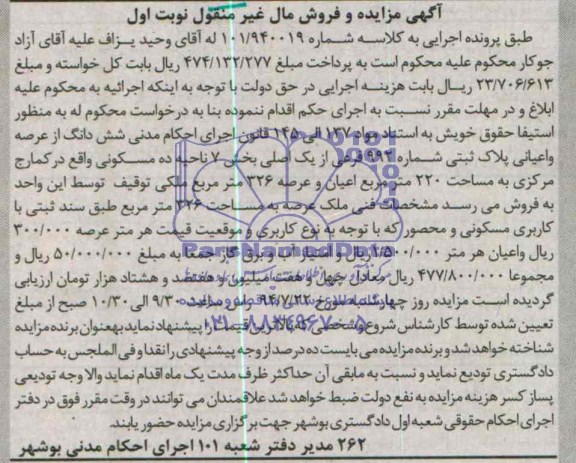 آگهی مزایده و فروش مال غیر منقول نوبت اول
طبق پرونده اجرایی به کلاسه شماره ۱۰۱/۹۴۰۰۱۹ له آقای وحید یزاف علیه آقای آزاد
جوکار محکوم علیه محکوم است به پرداخت مبلغ ۴۷۴/۱۳۲/۲۷۷ ریال بابت کل خواسته و مبلغ
۲۳/۷۰۶/۶۱۳ ریال بابت هزینه اجرایی در حق دولت با توجه به اینکه اجرائیه به محکوم علیه
ابلاغ و در مهلت مقرر نسبت به اجرای حکم اقدام ننموده بنا به درخواست محکوم له به منظور
استیفا حقوق خویش به استناد مواد ۱۳۷ الی ۱۴۵ قانون اجرای احکام مدنی شش دانگ از عرصه
واعیانی پلاک ثبتی شماره ۹۹۲ فرعی از یک اصلی بخش ۷ ناحیه ده مسکونی واقع درکمارج
مرکزی به مساحت ۲۲۰ متر مربع اعیان و عرصه ۳۲۶ متر مربع ملکی توقیف توسط این واحد
به فروش می رسد مشخصات فنی ملک عرصه به مساحت ۳۲۶ متر مربع طبق سند ثبتی با
کاربری مسکونی و محصور که با توجه به نوع کاربری و موقعیت قیمت هر متر عرصه ۳۰۰/۰۰۰
ریال واعیان هر متر ۱/۵۰۰/۰۰۰ ریال و امتیاز آب و برق گاز جمعا به مبلغ ۵۰/۰۰۰/۰۰۰ ریال و
مجموعا ۴۷۷/۸۰۰/۰۰۰ ریال معادل چهل و هفت میلیون و هفتصد و هشتاد هزار تومان ارزیابی
گردیده است مزایده روز چهارشنبه مورخ ۹۴/۷/۲۲ ساعت ۹/۳۰ الی ۱۰/۳۰ صبح از مبلغ
تعیین شده توسط کارشناس شروع وشخصی که بالاترین قیمت را پیشنهاد نماید بهعنوان برنده مزایده
شناخته خواهد شد و برنده مزایده می بایست ده درصد از وجه پیشنهادی را نقدا و فی المجلس به حساب
دادگستری تودیع نماید و نسبت به مابقی آن حداکثر ظرف مدت یک ماه اقدام نماید والا وجه تودیعی
پساز کسر هزینه مزایده به نفع دولت ضبط خواهد شد علاقمندان می توانند در وقت مقرر فوق در دفتر
اجرای احکام حقوقی شعبه اول دادگستری بوشهر جهت برگزاری مزایده حضور یابند.
۲۶۲ مدیر دفتر شعبه ۱۰۱ اجرای احکام مدنی بوشهر
ParsNamadData